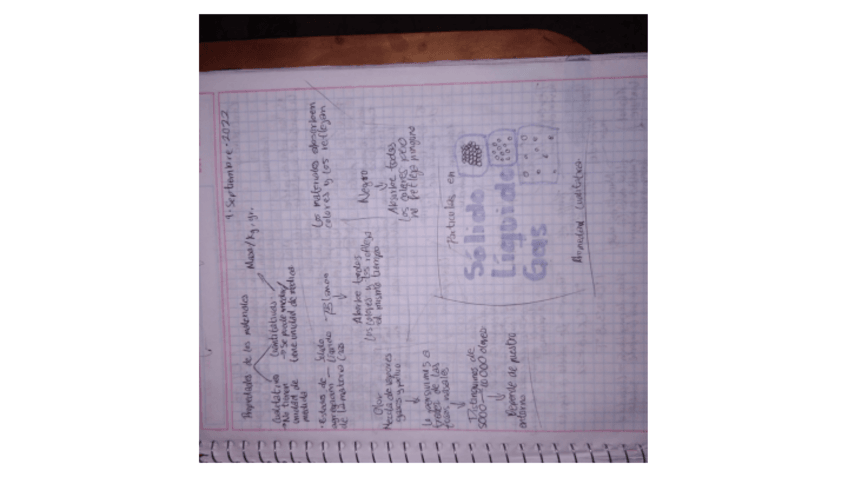 1-Septiembre-2022
Propiedades de los materiales
Masa/kg, gr.
Cualitativa
No tienen
unidad de
medida
Cuantitativas
Se puede medir/
tiene unidad de medida
Los materiales absorben
colores y los reflejan
Estados de
agregación
de la materia
Sólido
Líquido
Gas
Blanco
Absorbe todos
los colores y los refleja
al mismo tiempo
Negro
Absorbe todos
los colores pero
no refleja ninguno
Olor
Mezcla de vapores
gases y polvo
Lo percibimos a
través de las
fosas nasales
Distinguimos de
5000 - 10 000 olores
Depende de nuestro
entorno
Partículas en
Sólido
Líquido
Gas
Cualitativa